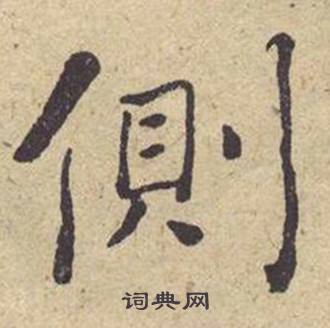 側
词典网